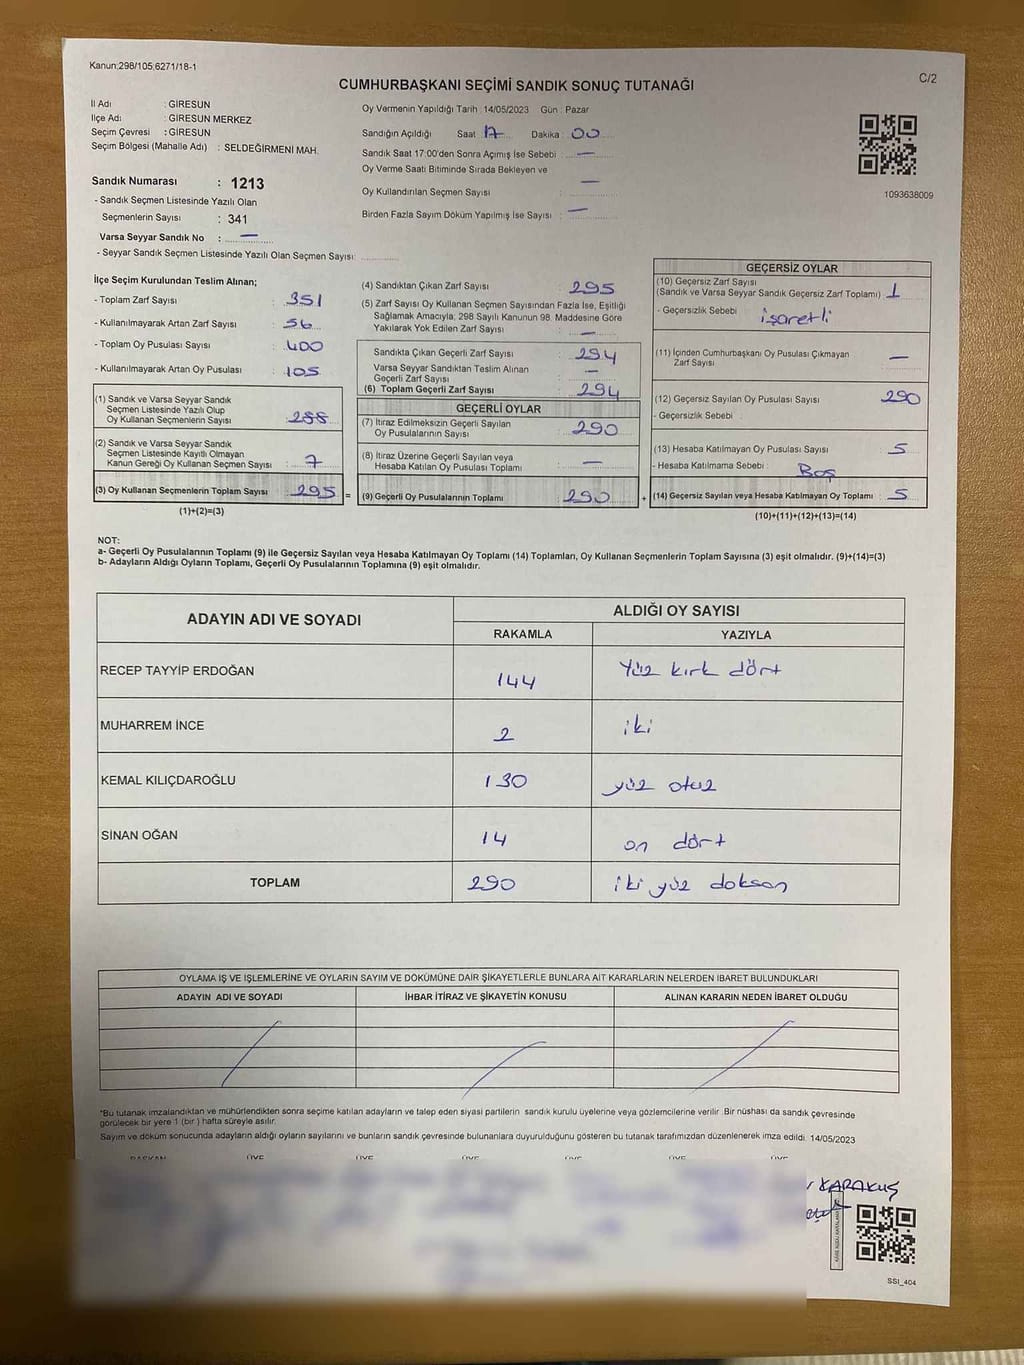 Kanun:298/105;6271/18-1
C/2
CUMHURBAŞKANI SEÇİMİ SANDIK SONUÇ TUTANAĞI
İl Adı : GİRESUN
İlçe Adı : GİRESUN MERKEZ
Seçim Çevresi : GİRESUN
Seçim Bölgesi (Mahalle Adı) : SELDEĞİRMENİ MAH.
Sandık Numarası : 1213
- Sandık Seçmen Listesinde Yazılı Olan
Seçmenlerin Sayısı : 341
Varsa Seyyar Sandık No : —
- Seyyar Sandık Seçmen Listesinde Yazılı Olan Seçmen Sayısı:
Oy Vermenin Yapıldığı Tarih : 14/05/2023 Gün : Pazar
Sandığın Açıldığı Saat 17 Dakika : 00
Sandık Saat 17:00'den Sonra Açımış İse Sebebi : —
Oy Verme Saati Bitiminde Sırada Bekleyen ve
Oy Kullandırılan Seçmen Sayısı : —
Birden Fazla Sayım Döküm Yapılmış İse Sayısı : —
1093638009
İlçe Seçim Kurulundan Teslim Alınan;
- Toplam Zarf Sayısı : 351
- Kullanılmayarak Artan Zarf Sayısı : 56
- Toplam Oy Pusulası Sayısı : 400
- Kullanılmayarak Artan Oy Pusulası : 105
(1) Sandık ve Varsa Seyyar Sandık
Seçmen Listesinde Yazılı Olup
Oy Kullanan Seçmenlerin Sayısı : 288
(2) Sandık ve Varsa Seyyar Sandık
Seçmen Listesinde Kayıtlı Olmayan
Kanun Gereği Oy Kullanan Seçmen Sayısı : 7
(3) Oy Kullanan Seçmenlerin Toplam Sayısı : 295 =
(1)+(2)=(3)
(4) Sandıktan Çıkan Zarf Sayısı : 295
(5) Zarf Sayısı Oy Kullanan Seçmen Sayısından Fazla İse, Eşitliği
Sağlamak Amacıyla; 298 Sayılı Kanunun 98. Maddesine Göre
Yakılarak Yok Edilen Zarf Sayısı : —
Sandıkta Çıkan Geçerli Zarf Sayısı : 294
Varsa Seyyar Sandıktan Teslim Alınan
Geçerli Zarf Sayısı : —
(6) Toplam Geçerli Zarf Sayısı : 294
GEÇERLİ OYLAR
(7) İtiraz Edilmeksizin Geçerli Sayılan
Oy Pusulalarının Sayısı : 290
(8) İtiraz Üzerine Geçerli Sayılan veya
Hesaba Katılan Oy Pusulası Toplamı : —
(9) Geçerli Oy Pusulalarının Toplamı : 290 +
GEÇERSİZ OYLAR
(10) Geçersiz Zarf Sayısı
(Sandık ve Varsa Seyyar Sandık Geçersiz Zarf Toplamı) : 1
- Geçersizlik Sebebi : işaretli
(11) İçinden Cumhurbaşkanı Oy Pusulası Çıkmayan
Zarf Sayısı : —
(12) Geçersiz Sayılan Oy Pusulası Sayısı : 290
- Geçersizlik Sebebi :
(13) Hesaba Katılmayan Oy Pusulası Sayısı : 5
- Hesaba Katılmama Sebebi : Boş
(14) Geçersiz Sayılan veya Hesaba Katılmayan Oy Toplamı : 5
(10)+(11)+(12)+(13)=(14)
NOT:
a- Geçerli Oy Pusulalarının Toplamı (9) ile Geçersiz Sayılan veya Hesaba Katılmayan Oy Toplamı (14) Toplamları, Oy Kullanan Seçmenlerin Toplam Sayısına (3) eşit olmalıdır. (9)+(14)=(3)
b- Adayların Aldığı Oyların Toplamı, Geçerli Oy Pusulalarının Toplamına (9) eşit olmalıdır.
ADAYIN ADI VE SOYADI
ALDIĞI OY SAYISI
RAKAMLA YAZIYLA
RECEP TAYYİP ERDOĞAN 144 Yüz kırk dört
MUHARREM İNCE 2 iki
KEMAL KILIÇDAROĞLU 130 yüz otuz
SİNAN OĞAN 14 on dört
TOPLAM 290 iki yüz doksan
OYLAMA İŞ VE İŞLEMLERİNE VE OYLARIN SAYIM VE DÖKÜMÜNE DAİR ŞİKAYETLERLE BUNLARA AİT KARARLARIN NELERDEN İBARET BULUNDUKLARI
ADAYIN ADI VE SOYADI İHBAR İTİRAZ VE ŞİKAYETİN KONUSU ALINAN KARARIN NEDEN İBARET OLDUĞU
*Bu tutanak imzalandıktan ve mühürlendikten sonra seçime katılan adayların ve talep eden siyasi partilerin sandık kurulu üyelerine veya gözlemcilerine verilir .Bir nüshası da sandık çevresinde
görülecek bir yere 1 (bir ) hafta süreyle asılır.
Sayım ve döküm sonucunda adayların aldığı oyların sayılarını ve bunların sandık çevresinde bulunanlara duyurulduğunu gösteren bu tutanak tarafımızdan düzenlenerek imza edildi. 14/05/2023
BAŞKAN ÜYE ÜYE ÜYE ÜYE ÜYE ÜYE
KARAKUŞ
SSI_404